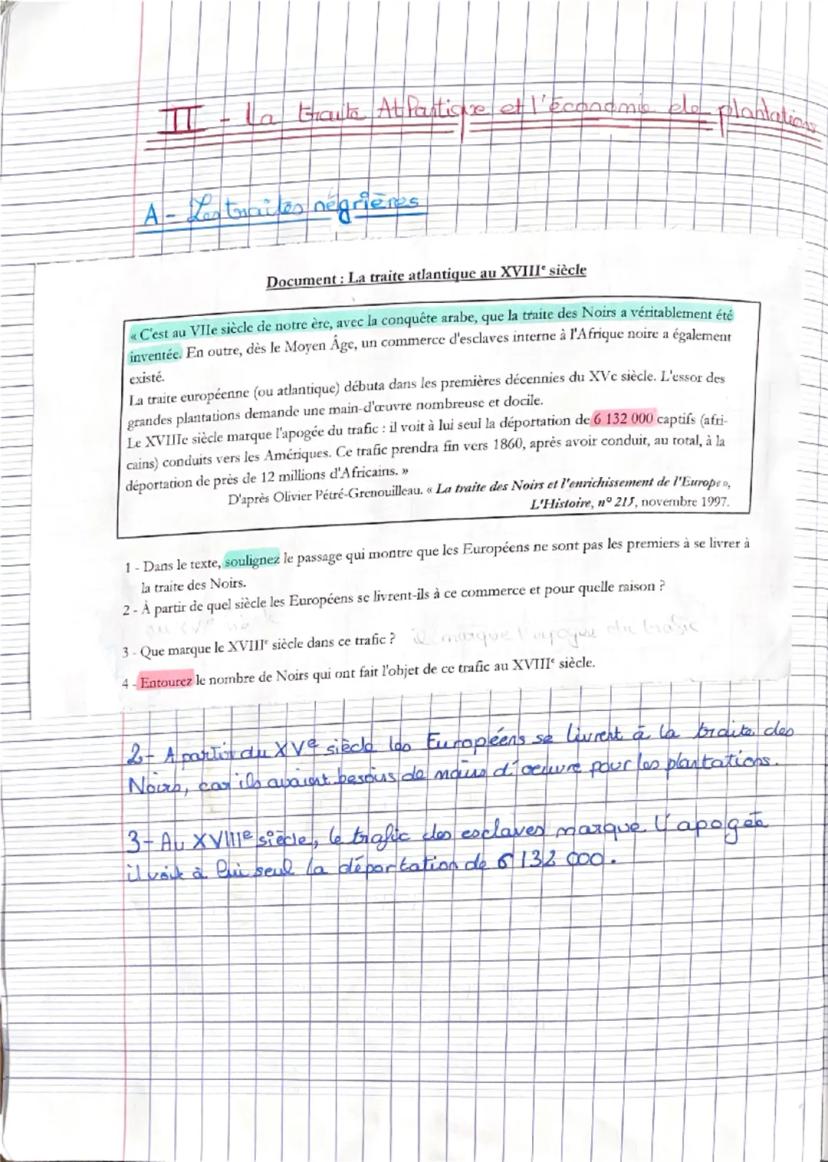 II - La traite Atlantique et l'économie de plantations
A - Les traites négrières
Document : La traite atlantique au XVIIIe siècle
« C'est au VIIe siècle de notre ère, avec la conquête arabe, que la traite des Noirs a véritablement été
inventée. En outre, dès le Moyen Âge, un commerce d'esclaves interne à l'Afrique noire a également
existé.
La traite européenne (ou atlantique) débuta dans les premières décennies du XVe siècle. L'essor des
grandes plantations demande une main-d'œuvre nombreuse et docile.
Le XVIIIe siècle marque l'apogée du trafic : il voit à lui seul la déportation de 6 132 000 captifs (afri-
cains) conduits vers les Amériques. Ce trafic prendra fin vers 1860, après avoir conduit, au total, à la
déportation de près de 12 millions d'Africains. »
D'après Olivier Pétré-Grenouilleau. « La traite des Noirs et l'enrichissement de l'Europe »,
L'Histoire, n° 215, novembre 1997.
1 - Dans le texte, soulignez le passage qui montre que les Européens ne sont pas les premiers à se livrer à
la traite des Noirs.
2 - À partir de quel siècle les Européens se livrent-ils à ce commerce et pour quelle raison ?
3 - Que marque le XVIIIe siècle dans ce trafic ? il marque l'apogée du trafic
4 - Entourez le nombre de Noirs qui ont fait l'objet de ce trafic au XVIIIe siècle.
2- A partir du XVe siècle les Européens se livrent à la traite des
Noirs, car ils avaient besoins de mains d'œuvre pour les plantations.
3- Au XVIIIe siècle, le trafic des esclaves marque l'apogée
il voit à lui seul la déportation de 6 132 000.